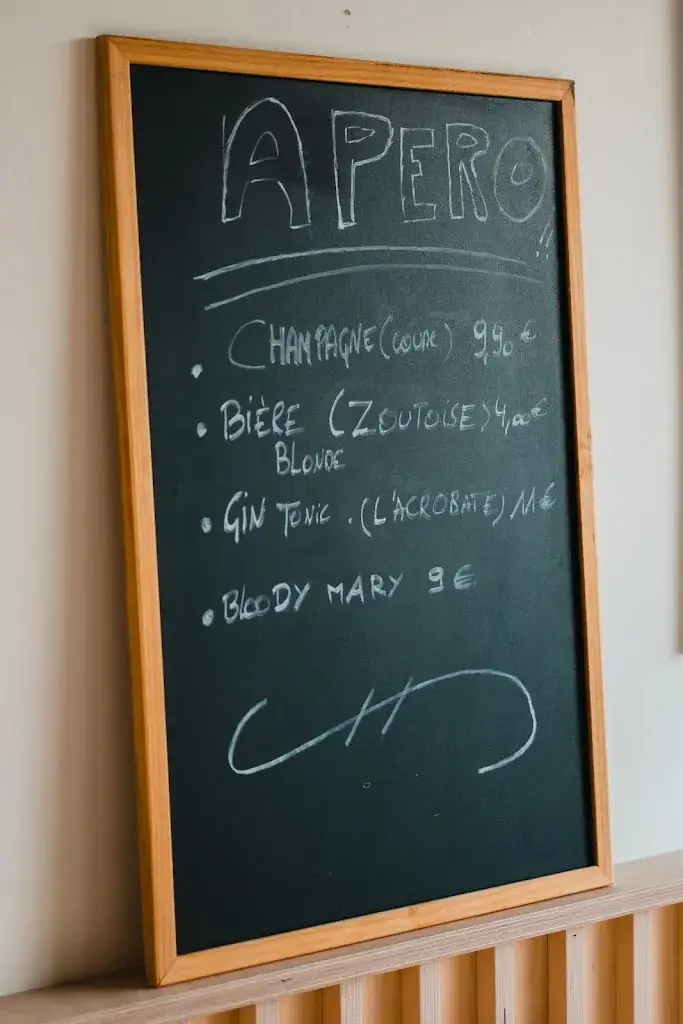 APERO
!!
• CHAMPAGNE (coupe) 9,90 €
• BIÈRE (ZOUTOISE) 4,00€
BLONDE
• GIN TONIC . (L'ACROBATE) 11 €
• BLOODY MARY 9 €